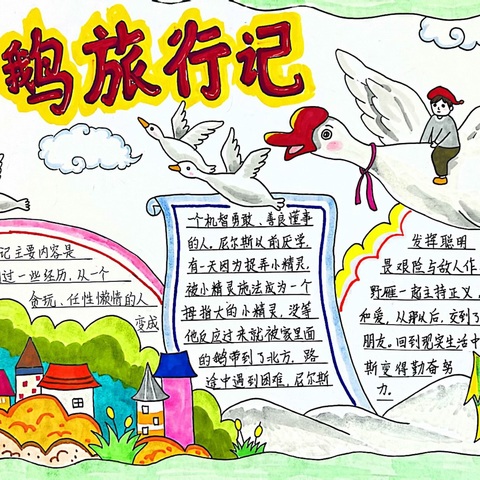 鹅旅行记
记主要内容是
过一些经历，从一个
贪玩、任性懒惰的人
变成
一个机智勇敢、善良懂事
的人，尼尔斯从前厌学，
有一天因为捉弄小精灵，
被小精灵施法成为一个
拇指大的小精灵，没等
他反应过来就被家里面
的鹅带到了北方，路
途中遇到困难，尼尔斯
发挥聪明
畏艰险与敌人作
野雁一起主持正义，
和爱，从那以后，交到了
朋友。回到现实生活中
斯变得勤奋努
力.